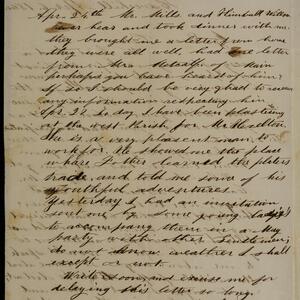 Apr. 24th Mr. Mills and Kimball Wilson
were hear and took dinner with me
they brought me a letter from those
they were all well, had one letter
from Mrs Metcalf.
perhaps you have heard of him?
If so I should be very glad to receive
any information respecting him
Apr. 29 to day I have been plastering
at the west Parish for Mr
He is a very pleasent man to
work for. He showed me the place
whare Father learned the platers
trade, and told me some of his
youthful adventures.
Yesterday I had an invitation
sent me by some young lady's
to accompany them in a May
party with other Gentlemen;
do not know weather I shall
except or not.
Write soon and excuse me for
delaying this letter so long.